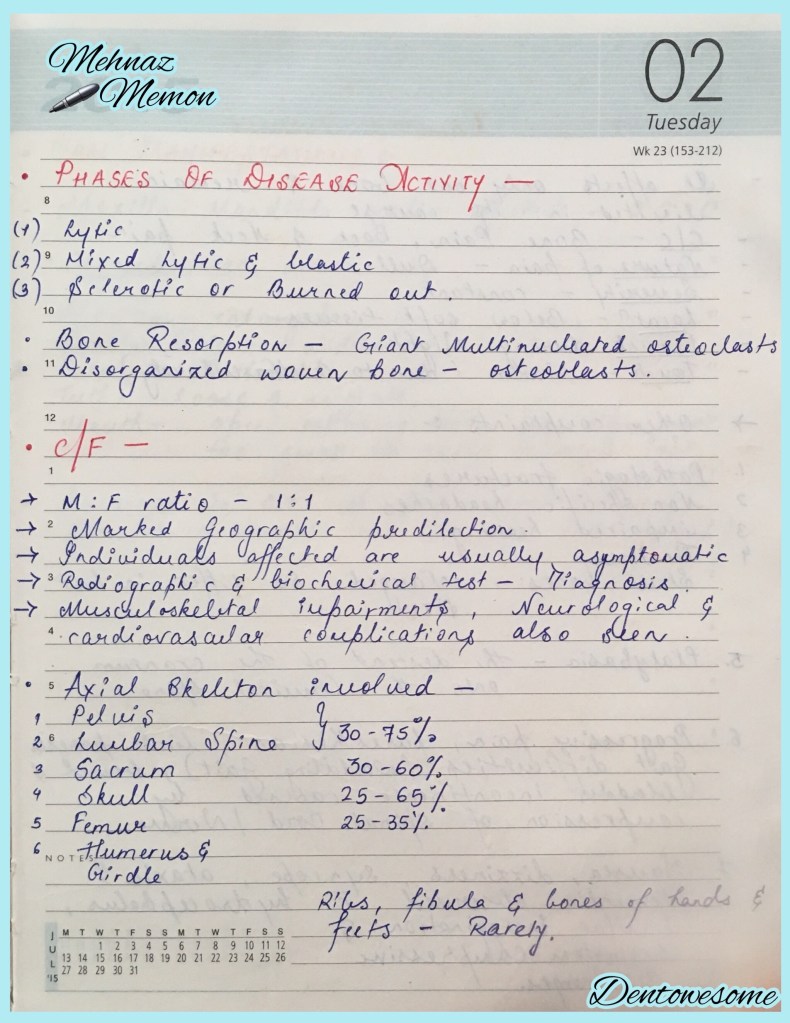 Mehnaz
Memon
02
Tuesday
Wk 23 (153-212)
• PHASES OF DISEASE ACTIVITY —
8
(1) Lytic
(2) 9 Mixed Lytic & blastic
(3) Sclerotic or Burned out.
10
• Bone Resorption — Giant Multinucleated osteoclasts
• 11 Disorganized woven Bone — osteoblasts.
12
• C/F —
1
→ M:F ratio — 1:1
→ 2 Marked Geographic predilection.
→ Individuals affected are usually asymptomatic
→ 3 Radiographic & biochemical test — Diagnosis.
→ Musculoskeletal impairments, Neurological &
4 cardiovascular complications also seen.
• 5 Axial Skeleton involved —
1 Pelvis
2 6 Lumbar Spine } 30-75%
3 Sacrum 30-60%
4 Skull 25-65%
5 Femur 25-35%
6 Humerus &
NOTES
Girdle
Ribs, fibula & bones of hands &
feets — Rarely.
JUL '15
M T W T F S S M T W T F S S
1 2 3 4 5 6 7 8 9 10 11 12
13 14 15 16 17 18 19 20 21 22 23 24 25 26
27 28 29 30 31
Dentowesome